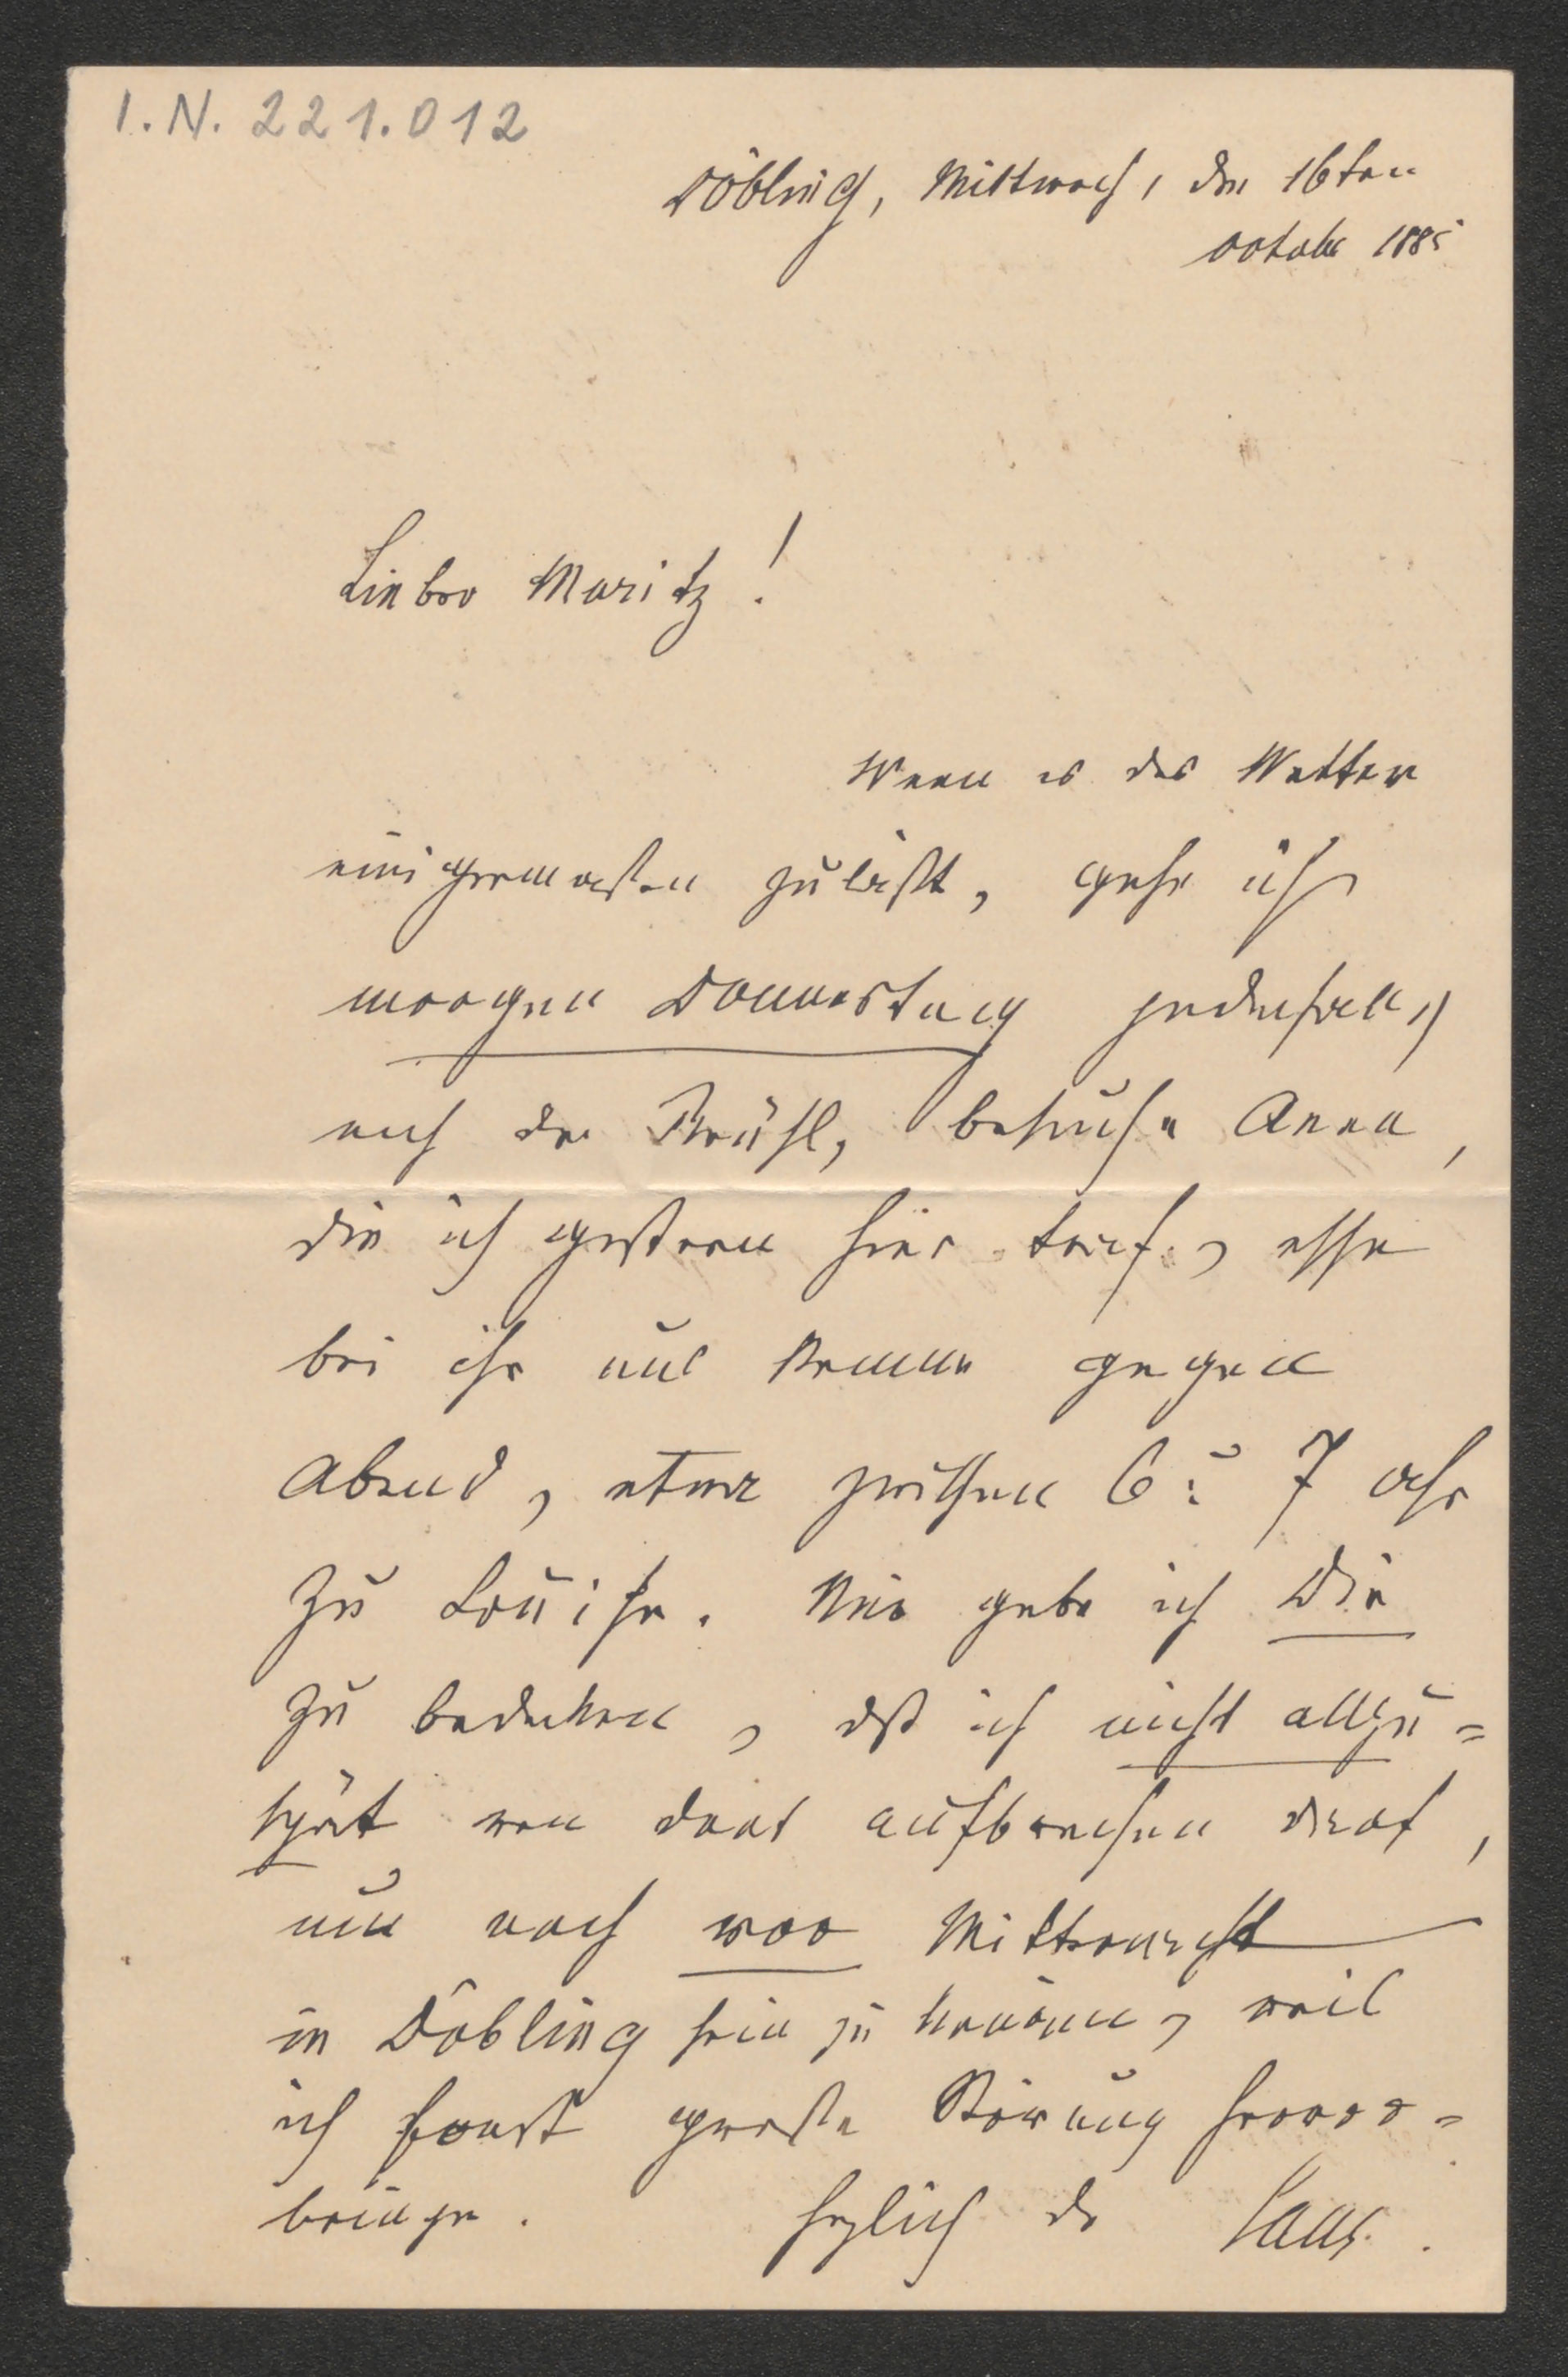 I.N. 221.012
Döbling, Mittwoch, den 16ten
October 1885
Lieber Moritz!
Wenn es das Wetter
einigermaßen zuläßt, gehe ich
morgen Donnerstag jedenfalls
nach der Brühl, besuche Anna,
die ich gestern hier traf, esse
bei ihr und komme gegen
Abend, etwa zwischen 6 u 7 Uhr
zu Louise. Nur gebe ich Dir
zu bedenken, daß ich nicht allzu=
spät von dort aufbrechen darf,
um noch vor Mitternacht
in Döbling sein zu können, weil
ich sonst große Störung hervor=
bringe. Herzlich Dr